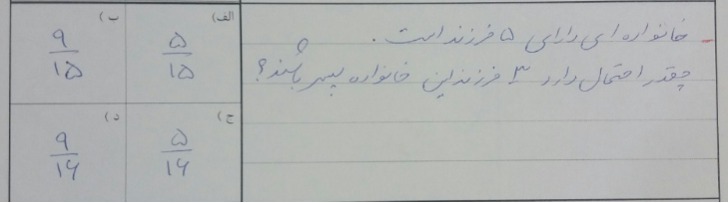 - خانواده ای دارای ۵ فرزند است.
چقدر احتمال دارد ۳ فرزند این خانواده پسر باشند؟
الف) ۵/۱۵
ب) ۹/۱۵
ج) ۵/۱۶
د) ۹/۱۶